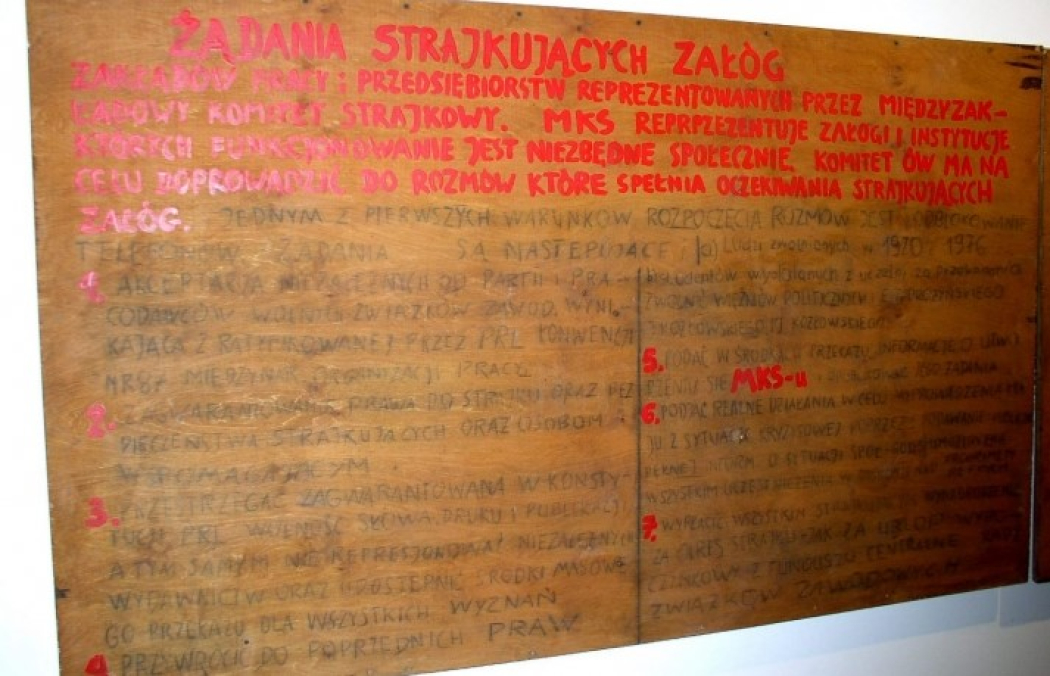 ŻĄDANIA STRAJKUJĄCYCH ZAŁÓG
ZAKŁADÓW PRACY I PRZEDSIEBIORSTW REPREZENTOWANYCH PRZEZ MIĘDZYZAK-
ŁADOWY KOMITET STRAJKOWY. MKS REPRPZENTUJE ZAŁOGI I INSTYTUCJE
KTÓRYCH FUNKCJONOWANIE JEST NIEZBĘDNE SPOŁECZNIE. KOMITET ÓW MA NA
CELU DOPROWADZIĆ DO ROZMÓW KTÓRE SPEŁNIA OCZEKIWANIA STRAJKUJĄCYCH
ZAŁÓG. JEDNYM Z PIERWSZYCH WARUNKÓW ROZPOCZĘCIA ROZMÓW JEST ODBLOKOWANIE
TELEFONÓW ŻADANIA SĄ NASTEPUJĄCE:
1. AKCEPTACJA NIEZALEŻNYCH OD PARTII I PRA-
CODAWCÓW WOLNYCH ZWIĄZKÓW ZAWOD. WYNI-
KAJĄCA Z RATYFIKOWANEJ PRZEZ PRL KONWENCJI
NR87 MIĘDZYNAR. ORGANIZACJI PRACY.
2. ZAGWARANTOWANIE PRAWA DO STRAJKU ORAZ BEZ
PIECZEŃSTWA STRAJKUJĄCYCH ORAZ OSOBOM
WSPOMAGAJĄCYM.
3. PRZESTRZEGAĆ ZAGWARANTOWANĄ W KONSTY-
TUCJI PRL WOLNOŚĆ SŁOWA, DRUKU I PUBLIKACJI
A TYM SAMYM NIE REPRESJONOWAĆ NIEZALEŻNYCH
WYDAWNICTW ORAZ UDOSTĘPNIĆ ŚRODKI MASOWE
GO PRZEKAZU DLA WSZYSTKICH WYZNAŃ
4. PRZYWRÓCIĆ DO POPRZEDNICH PRAW
a) Ludzi zwolnionych w 1970 i 1976
b) studentów wydalonych z uczelni za przekonania
ZWOLNIĆ WIĘŹNIÓW POLITYCZNYCH
J. KOZŁOWSKIEGO, M. KOZŁOWSKIEGO
5. PODAĆ W ŚRODKACH PRZEKAZU INFORMACJE O UTWO
RZENIU SIĘ MKS-u I OPUBLIKOWAĆ JEGO ŻĄDANIA
6. PODJĄĆ REALNE DZIAŁANIA W CELU WYPROWADZENIA KRA
JU Z SYTUACJI KRYZYSOWEJ POPRZEZ: PODAWANIE
PEŁNEJ INFORM. O SYTUACJI SPOŁ-GOSPODARCZEJ
WSZYSTKIM
7. WYPŁACIĆ WSZYSTKIM STRAJKUJĄCYM WYNAGRODZENIE
ZA OKRES STRAJKU JAK ZA URLOP WYPO
CZYNKOWY Z FUNDUSZU CENTRALNEJ RADY
ZWIĄZKÓW ZAWODOWYCH